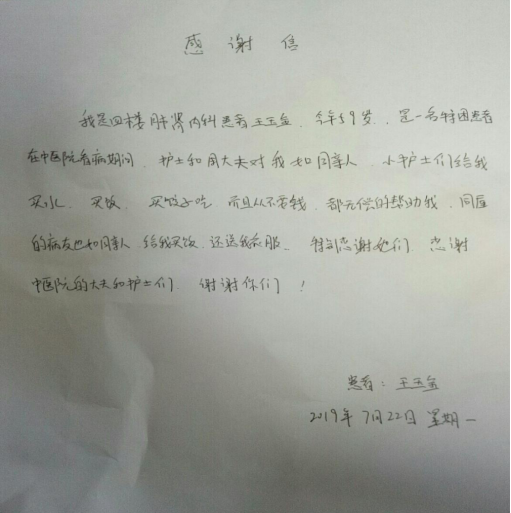 感谢信
我是四楼肝肾内科患者王玉金,今年59岁,是一名特困患者
在中医院看病期间,护士和周大夫对我如同亲人,小护士们给我
买水、买饭、买饺子吃,而且从不要钱,都无偿的帮助我,同屋
的病友也如同亲人,给我买饭,还送我衣服、特别感谢她们 感谢
中医院的大夫和护士们、谢谢你们!
患者:王玉金
2019年7月22日 星期一